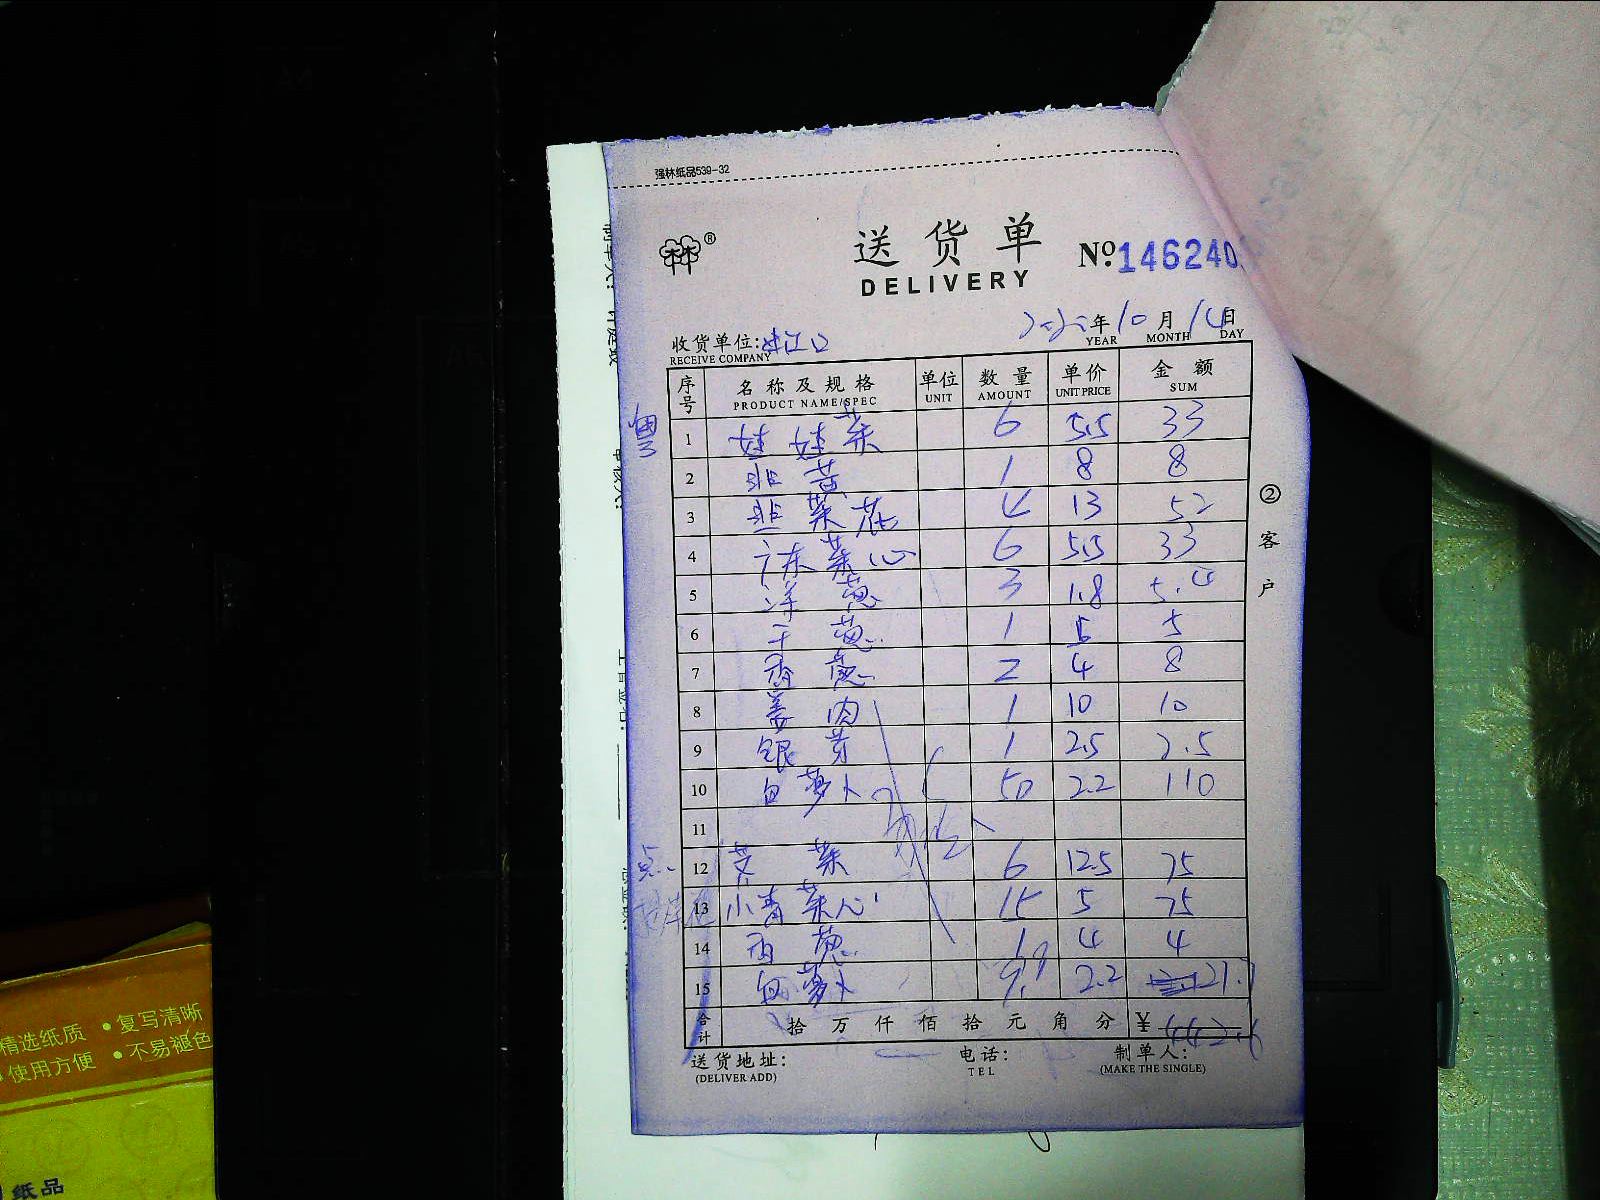 强林纸品539-32
®
送货单
DELIVERY
№146240
年10月14日
YEAR MONTH DAY
收货单位:
RECEIVE COMPANY
序号 名称及规格 单位 数量 单价 金额
PRODUCT NAME/SPEC UNIT AMOUNT UNIT PRICE SUM
1 娃娃菜 6 5.5 33
2 韭黄 1 8 8
3 韭菜花 4 13 52
4 广东菜心 6 5.5 33
5 洋葱 3 1.8 5.4
6 干葱 1 5 5
7 香葱 2 4 8
8 姜肉 1 10 10
9 银芽 1 2.5 2.5
10 白萝卜 50 2.2 110
11
12 菜 6 12.5 75
13 小青菜心 15 5 75
14 香葱 1 4 4
15 白萝卜 9.9 2.2 21.7
合计 拾万仟佰拾元角分 ¥
送货地址: 电话: 制单人:
(DELIVER ADD) TEL (MAKE THE SINGLE)
②客户
精选纸质 •复写清晰
使用方便 •不易褪色
纸品